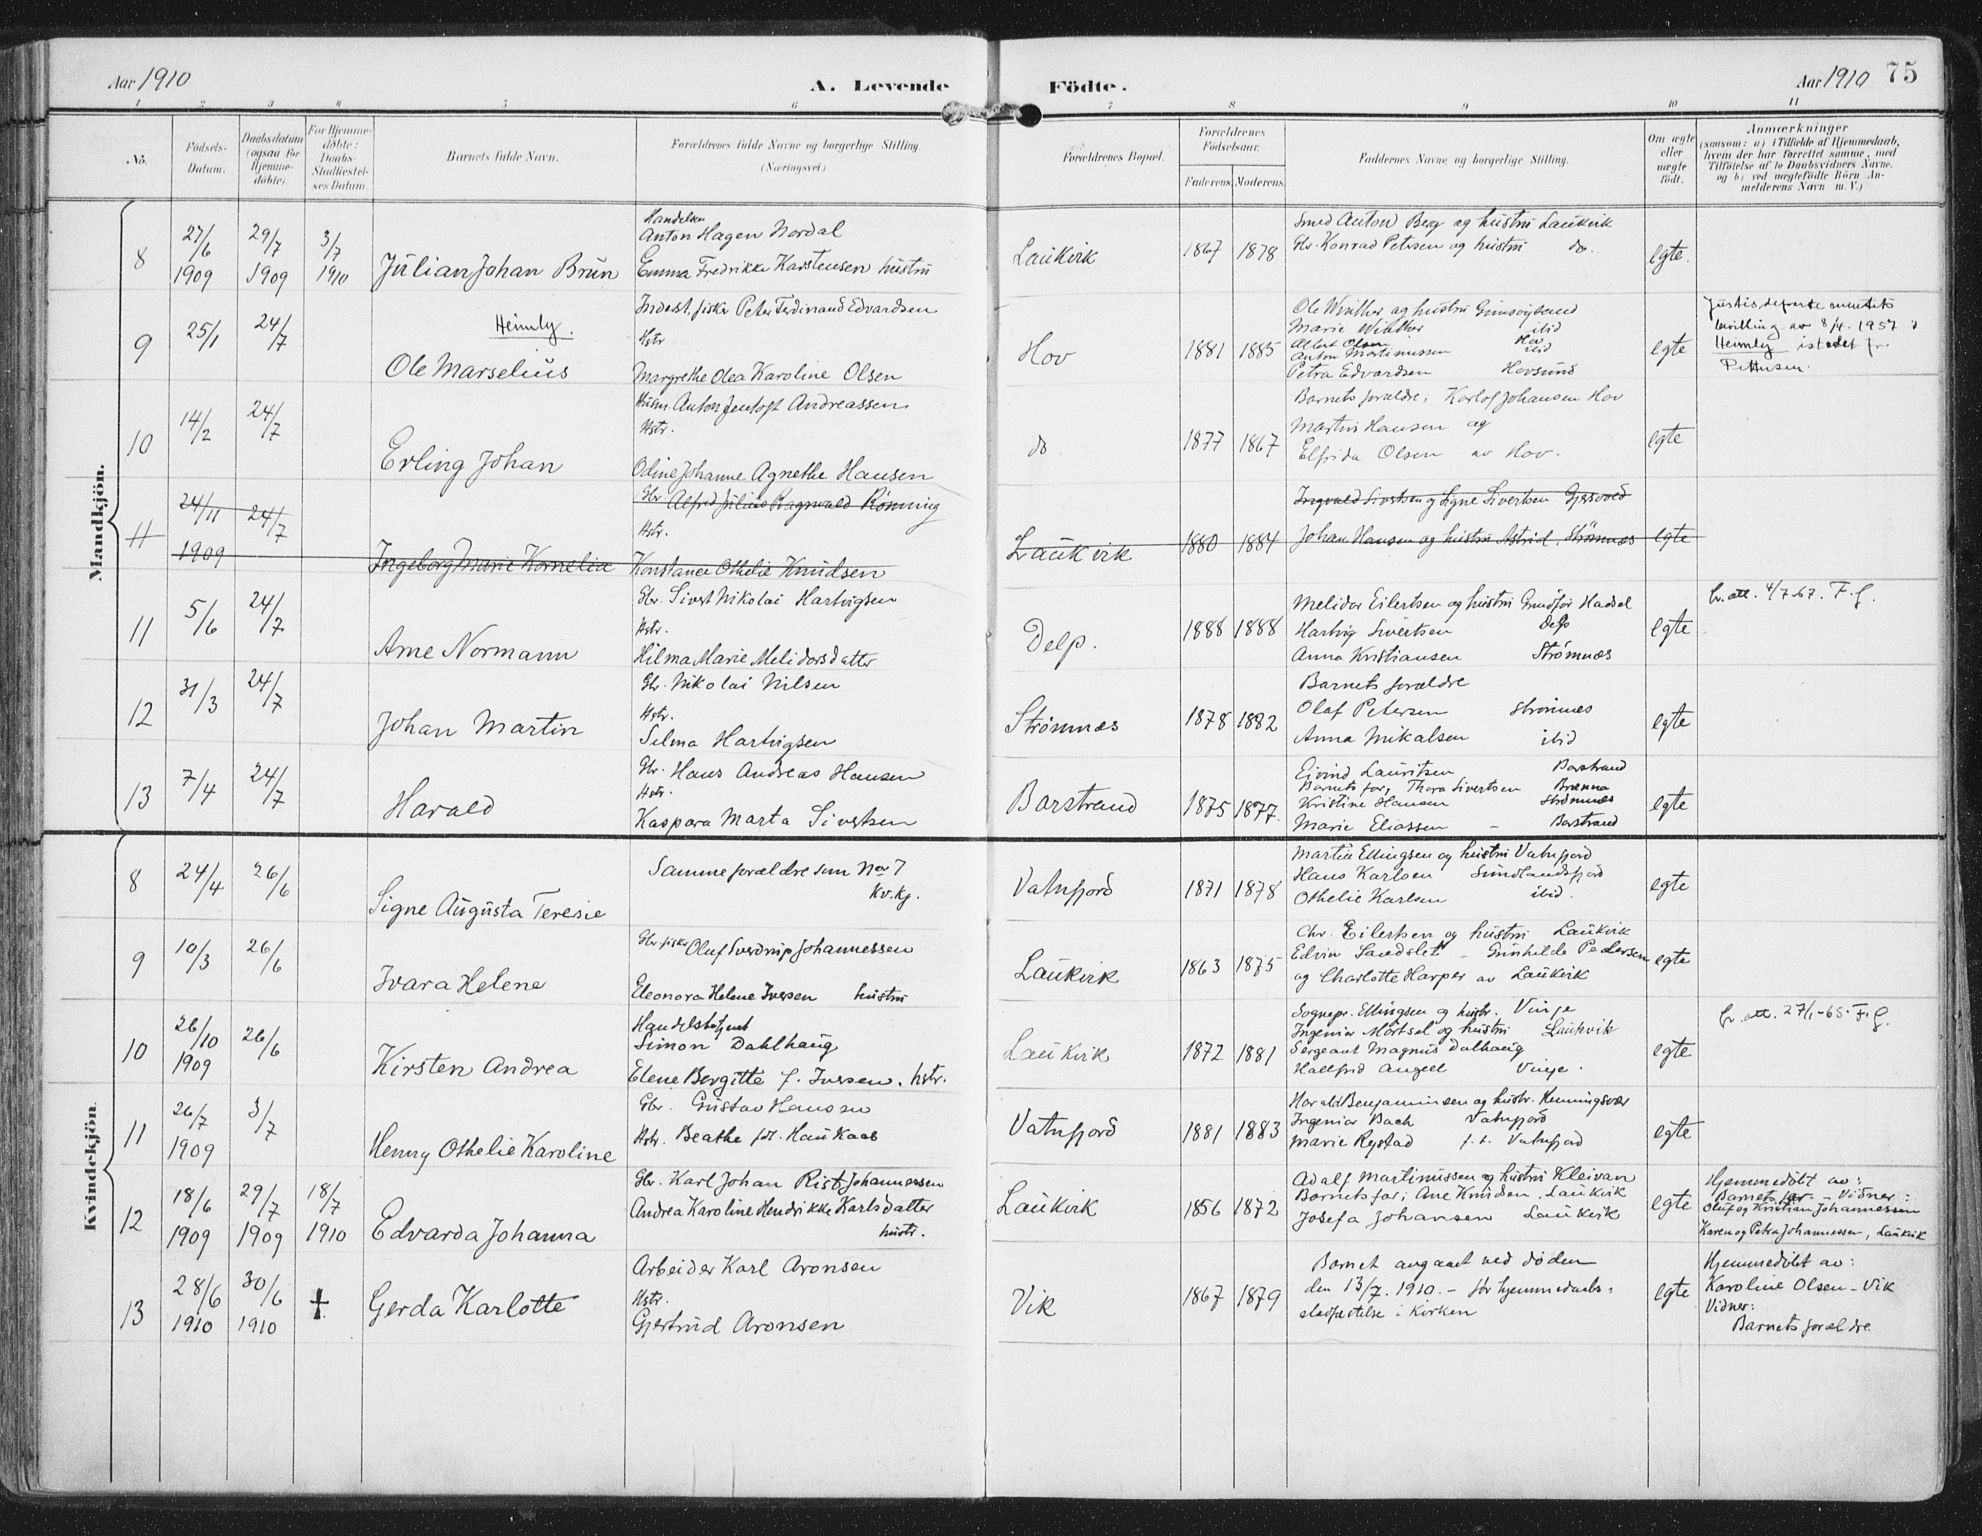 Aar 1910
A. Levende
Födte.
Aar 1910
75
1 2 3 4 5 6 7 8 9 10 11
No.
Födsels-
Datum.
Daabsdatum
(ogsaa for
Hjemme-
döbte).
For Hjemme-
döbte:
Daabs-
Stadfæstel-
ses Datum.
Barnets fulde Navn.
Forældrenes fulde Navne og borgerlige Stilling
(Næringsvei.)
Forældrenes Bopæl.
Forældrenes
Födselsaar.
Faderens. Moderens.
Faddernes Navne og borgerlige Stilling.
Om ægte
eller
uægte
födt.
Anmærkninger
(saasom: a) i Tilfælde af Hjemmedaab,
hvem der har forrettet samme, med
Tilföielse af to Daabsvidners Navne.
og b) ved uægtefödte Börn An-
melderens Navn m. V.)
Mandkjön.
8
27/6 1909
29/7 1909
3/7 1910
Julian Johan Brun
Handelsm
Anton Hagen Nordal
Emma Fredrikke Karstensen hustru
Laukvik
1867 1878
Smed Anton Berg og hustru Laukvik
Gbr. Konrad Petersen og hustru do.
egte.
9
25/1
24/7
Heimly.
Ole Marselius
Inderst, fisker Peter Ferdinand Edvardsen
Hstr
Margrethe Olea Karoline Olsen
Hov
1881 1885
Ole Winther og hustru Gimsøysand
Marie Winther ibid
Albert Olsen Hov
Anton Martinussen ibid
Petra Edvardsen Hovsund
egte
Justisdepartementets
bevilling av 8/4. 1957
Heimly istedet for
10
14/2
24/7
Erling Johan
Husm. Anton Jentoft Andreassen
Hstr.
Odine Johanne Agnethe Hansen
do
1877 1867
Barnets forældre, Karlof Johansen Hov
Martin Hansen og
Elfrida Olsen av Hov.
egte
11
24/11 1909
24/7
Ingeborg Marie Kornelia
Gbr Alfred Julius Ragnvald Rønning
Hstr.
Konstance Othelie Knudsen
Laukvik
1880 1884
Ingvald Sivertsen og Signe Sivertsen Gjersvold
Johan Hansen og hustru Astrid, Strömnæs
egte
11
5/6
24/7
Arne Normann
Gbr. Sivert Nikolai Hartvigsen
Hstr.
Hilma Marie Melidorsdatter
Delp.
1888 1888
Melidor Eilertsen og hustru Grundfør Hadsel
Hartvig Sivertsen Delp
Anna Kristiansen Strømnæs
egte
fr. att. 4/7 67. F. f.
12
31/3
24/7
Johan Martin
Gbr. Nikolai Nilsen
Hstr.
Selma Hartvigsen
Strømnæs
1878 1882
Barnets forældre
Olaf Petersen Strømnæs
Anna Mikalsen ibid
egte
13
7/4
24/7
Harald
Gbr. Hans Andreas Hansen
Hstr.
Kaspara Marta Sivertsen
Barstrand
1875 1877.
Eivind Lauritsen Barstrand
Barnets far, Thora Sivertsen Brenna
Kristine Hansen Strömnæs
Marie Eliassen - Barstrand
egte
Kvindekjön.
8
24/4
26/6
Signe Augusta Teresie
Samme forældre som No 7
Kv.kj.
Vatnfjord
1871 1878
Martin Ellingsen og hustru Vatnfjord
Hans Karlsen Sundlandsfjord
Othelie Karlsen ibid.
egte
9
10/3
26/6
Ivara Helene
Gbr. fisker Oluf Sverdrup Johannessen
Eleonora Helene Iversen hustru
Laukvik
1863 1875
Chr. Eilertsen og hustru Laukvik
Edvin Sandslet - Gunhilde Pedersen
og Charlotte Harper av Laukvik
egte
10
26/10 1909
26/6
Kirsten Andrea
Handelsbetjent
Simon Dahlhaug
Elene Bergitte f. Iversen. hstr.
Laukvik
1872 1881
Sognepr. Ellingsen og hustr. Vinje
Ingeniør Mörtsel og hustru Laukvik
Sergeant Magnus Dalhaug
Hallfrid Angell Vinje.
egte
fr. att. 27/1-65. F.f.
11
26/7 1909
3/7
Henny Othelie Karoline
Gbr. Gustav Hansen
Hstr. Beathe fdt. Haukaas
Vatnfjord
1881 1883
Harald Benjaminsen og hustr. Henningsvær
Ingeniør Bach Vatnfjord
Marie Rystad f. t. Vatnfjord
egte
12
18/6 1909
29/7 1909
18/7 1910
Edvarda Johanna
Gbr. Karl Johan Rist Johannessen
Andrea Karoline Hendrikke Karlsdatter
hustr.
Laukvik
1856 1872
Adolf Martinussen og hustru Kleivan
Barnets far, Ane Knudsen, Laukvik
Josefa Johansen Laukvik
egte
Hjemmedöbt av:
Barnets far - Vidner:
Oluf og Kristian Johannessen
Karen og Petra Johannessen, Laukvik
13
28/6 1910
30/6 1910
†
Gerda Karlotte
Arbeider Karl Aronsen
Hstr.
Gjertrud Aronsen
Vik
1867 1879
Barnet avgaaet ved døden
den 13/7. 1910. - før hjemmedaabs-
stadfæstelse i Kirken
egte
Hjemmedöbt av:
Karoline Olsen - Vik
Vidner:
Barnets forældre.